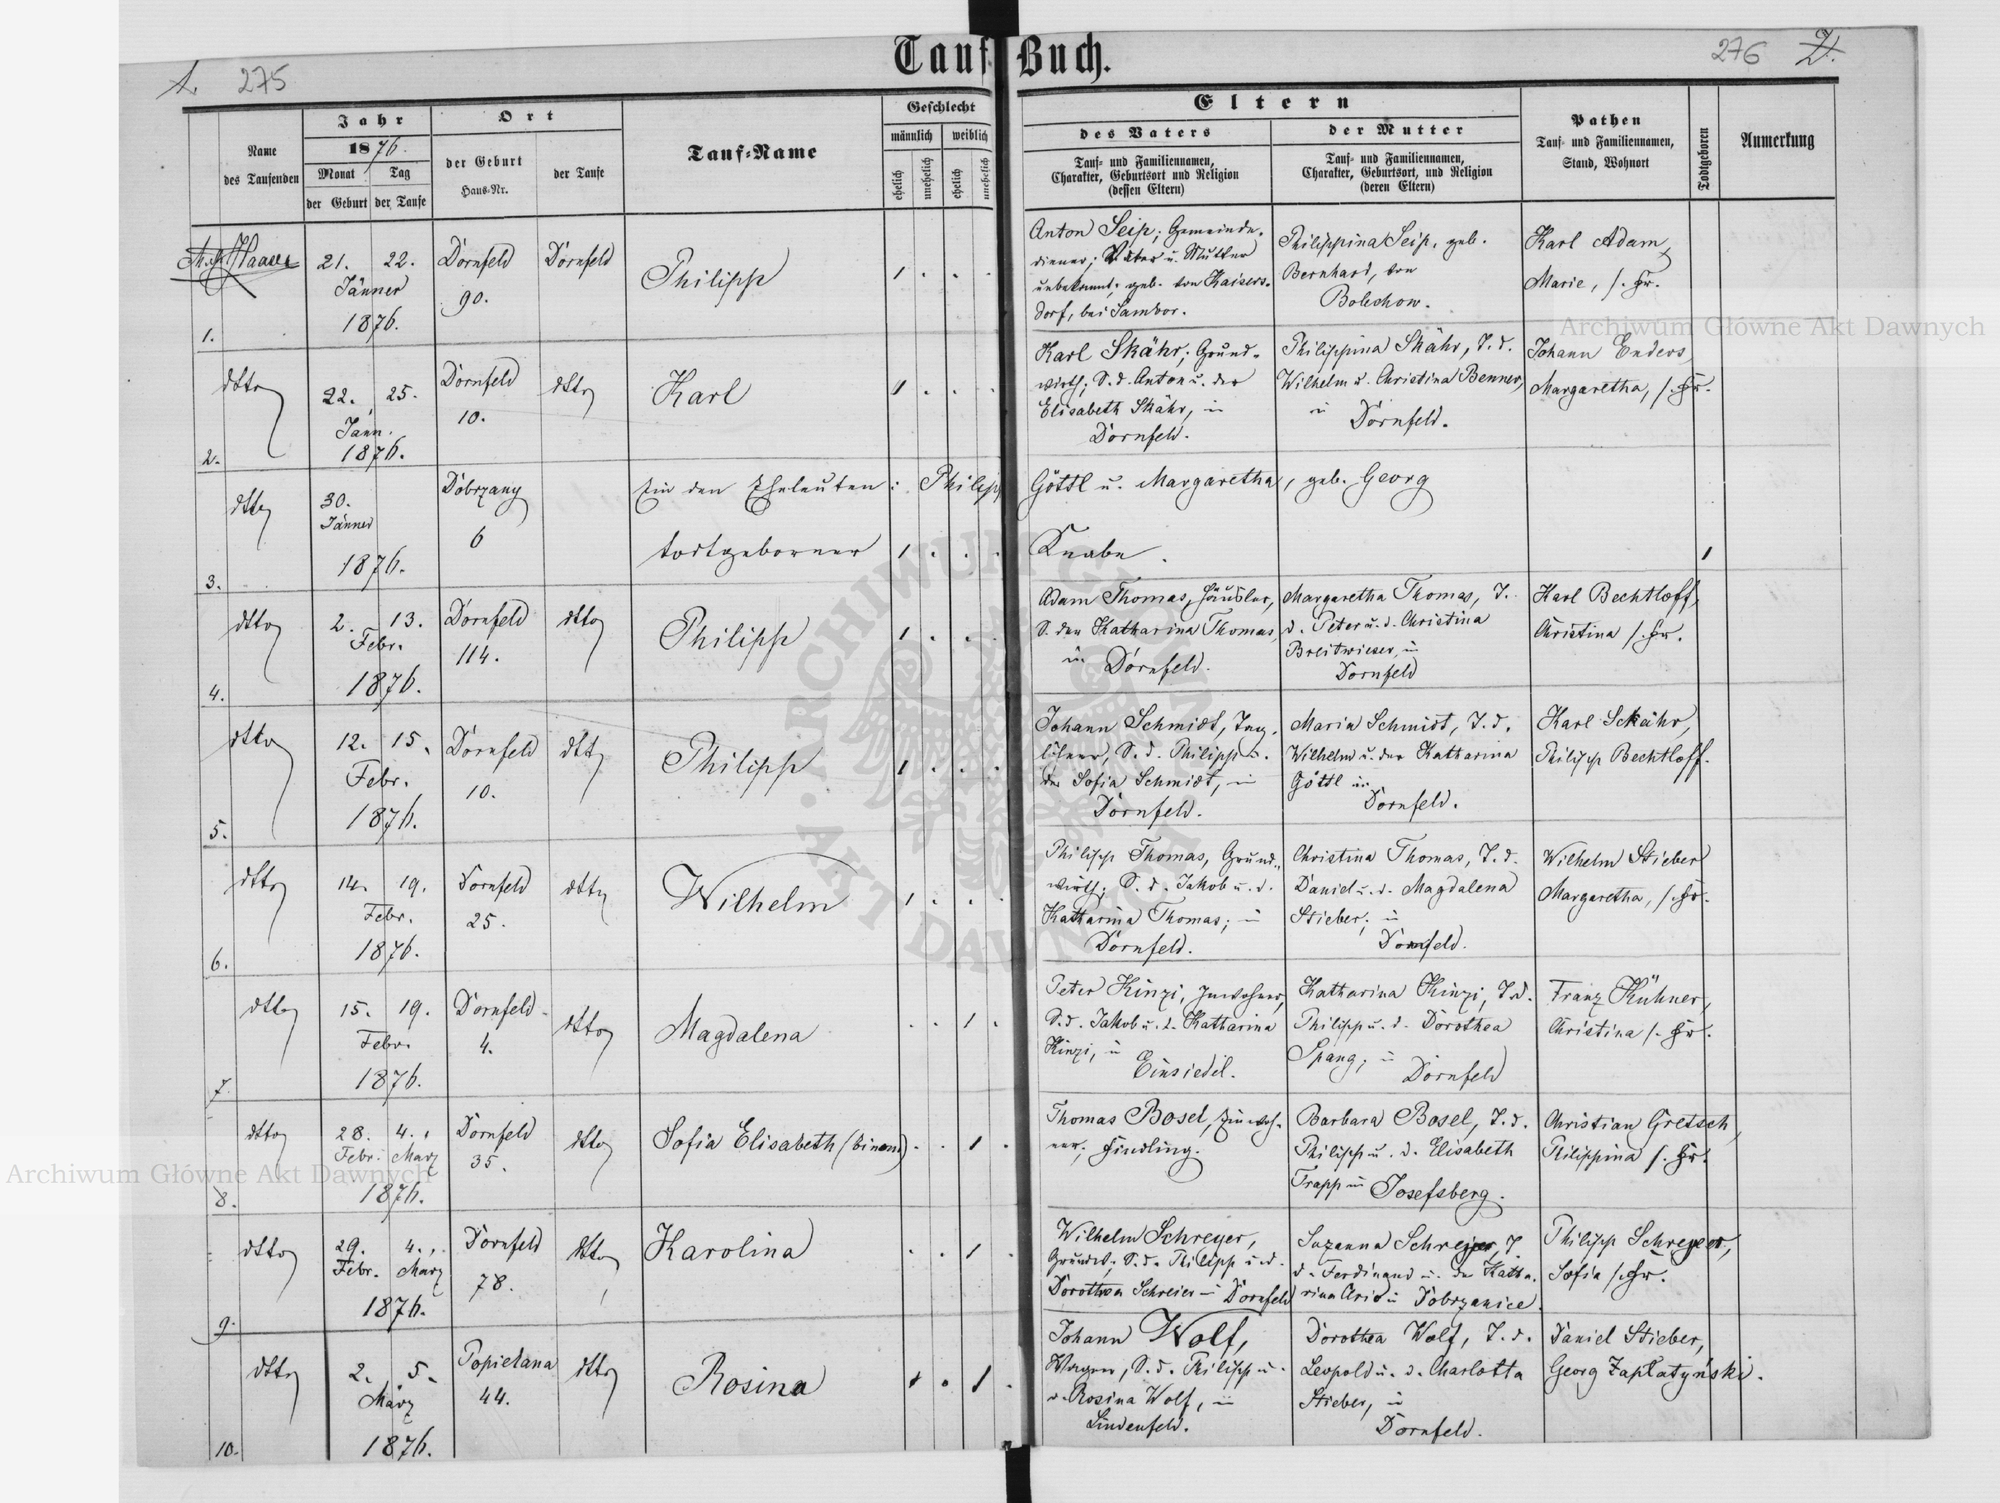 Tauf Buch.
1. 275
276 2.
Name
des Taufenden
Jahr
1876.
Monat Tag
der Geburt der Taufe
Ort
der Geburt
Haus-Nr.
der Taufe
Tauf-Name
Geschlecht
männlich weiblich
ehelich unehelich ehelich unehelich
Eltern
des Vaters
Tauf- und Familiennamen,
Charakter, Geburtsort und Religion
(dessen Eltern)
der Mutter
Tauf- und Familiennamen,
Charakter, Geburtsort, und Religion
(deren Eltern)
Pathen
Tauf- und Familiennamen,
Stand, Wohnort
Todtgeboren
Anmerkung
1.
Haase
21. 22.
Jänner
1876.
Dornfeld
90.
Dornfeld
Philipp
1 . . .
Anton Seip; Gemeinde-
diener; Vater u. Mutter
unbekannt; geb. von Kaisers-
dorf, bei Sambor.
Philippina Seip, geb.
Bernhard, von
Bolechow.
Karl Adam,
Marie, s. Fr.
2.
dtto
22. 25.
Jänn.
1876.
Dornfeld
10.
dtto
Karl
1 . . .
Karl Skähr; Grund-
wirth; S. d. Anton u. der
Elisabeth Skähr, in
Dornfeld.
Philippina Skähr, T. d.
Wilhelm u. Christina Benner,
in Dornfeld.
Johann Enders
Margaretha, s. Fr.
3.
dtto
30.
Jänner
1876.
Dobrzany
6
Ein den Eheleuten: Philipp Göttl u. Margaretha, geb. Georg
todtgeborner 1 . . . Knabe.
1
4.
dtto
2. 13.
Febr.
1876.
Dornfeld
114.
dtto
Philipp
1 . . .
Adam Thomas, Häusler,
S. der Katharina Thomas,
in Dornfeld.
Margaretha Thomas, T.
d. Peter u. d. Christina
Breitwieser, in
Dornfeld
Karl Bechtloff,
Christina s. Fr.
5.
dtto
12. 15.
Febr.
1876.
Dornfeld
10.
dtto
Philipp
1 . . .
Johann Schmidt, Tag-
löhner, S. d. Philipp u.
der Sofia Schmidt, in
Dornfeld.
Maria Schmidt, T. d.
Wilhelm u. der Katharina
Göttl in
Dornfeld.
Karl Skähr,
Philipp Bechtloff.
6.
dtto
14. 19.
Febr.
1876.
Dornfeld
25.
dtto
Wilhelm
1 . . .
Philipp Thomas, Grund-
wirth; S. d. Jakob u. d.
Katharina Thomas; in
Dornfeld.
Christina Thomas, T. d.
Daniel u. d. Magdalena
Stieber; in
Dornfeld.
Wilhelm Stieber
Margaretha, s. Fr.
7.
dtto
15. 19.
Febr.
1876.
Dornfeld
4.
dtto
Magdalena
. . 1 .
Peter Kinzi, Inwohner,
S. d. Jakob u. d. Katharina
Kinzi, in
Einsiedel.
Katharina Kinzi, T. d.
Philipp u. d. Dorothea
Spang; in
Dornfeld
Franz Kühner,
Christina s. Fr.
8.
dtto
28. 4.
Febr. März
1876.
Dornfeld
35.
dtto
Sofia Elisabeth (binom)
. . 1 .
Thomas Bosel, Einwoh-
ner; Findling.
Barbara Bosel, T. d.
Philipp u. d. Elisabeth
Trapp in Josefsberg.
Christian Gretsch,
Philippina s. Fr.
9.
dtto
29. 4.
Febr. März
1876.
Dornfeld
78.
dtto
Karolina
. . 1 .
Wilhelm Schreyer,
S. d. Philipp u. d.
Dorothea Schreier in Dornfeld
Suzanna Schreyer, T.
d. Ferdinand u. der Katha-
rina in Dobrzanice.
Philipp Schreyer,
Sofia s. Fr.
10.
dtto
2. 5.
März
1876.
Popielana
44.
dtto
Rosina
. . 1 .
Johann Wolf,
Wagner, S. d. Philipp u.
d. Rosina Wolf, in
Lindenfeld.
Dorothea Wolf, T. d.
Leopold u. d. Charlotta
Stieber, in
Dornfeld.
Daniel Stieber,
Georg Zapłatyński.
Archiwum Główne Akt Dawnych
Archiwum Główne Akt Dawnych